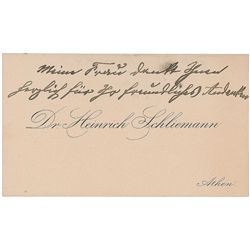 Meine Frau dankt Ihnen
herzlich für Ihr freundliches Andenken
Dr Heinrich Schliemann
Athen